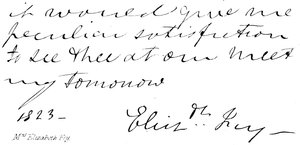 it would give me
peculiar satisfaction
to see thee at our meet
ing tomorrow
1823 – Elizth. Fry –
Mrs Elizabeth Fry.